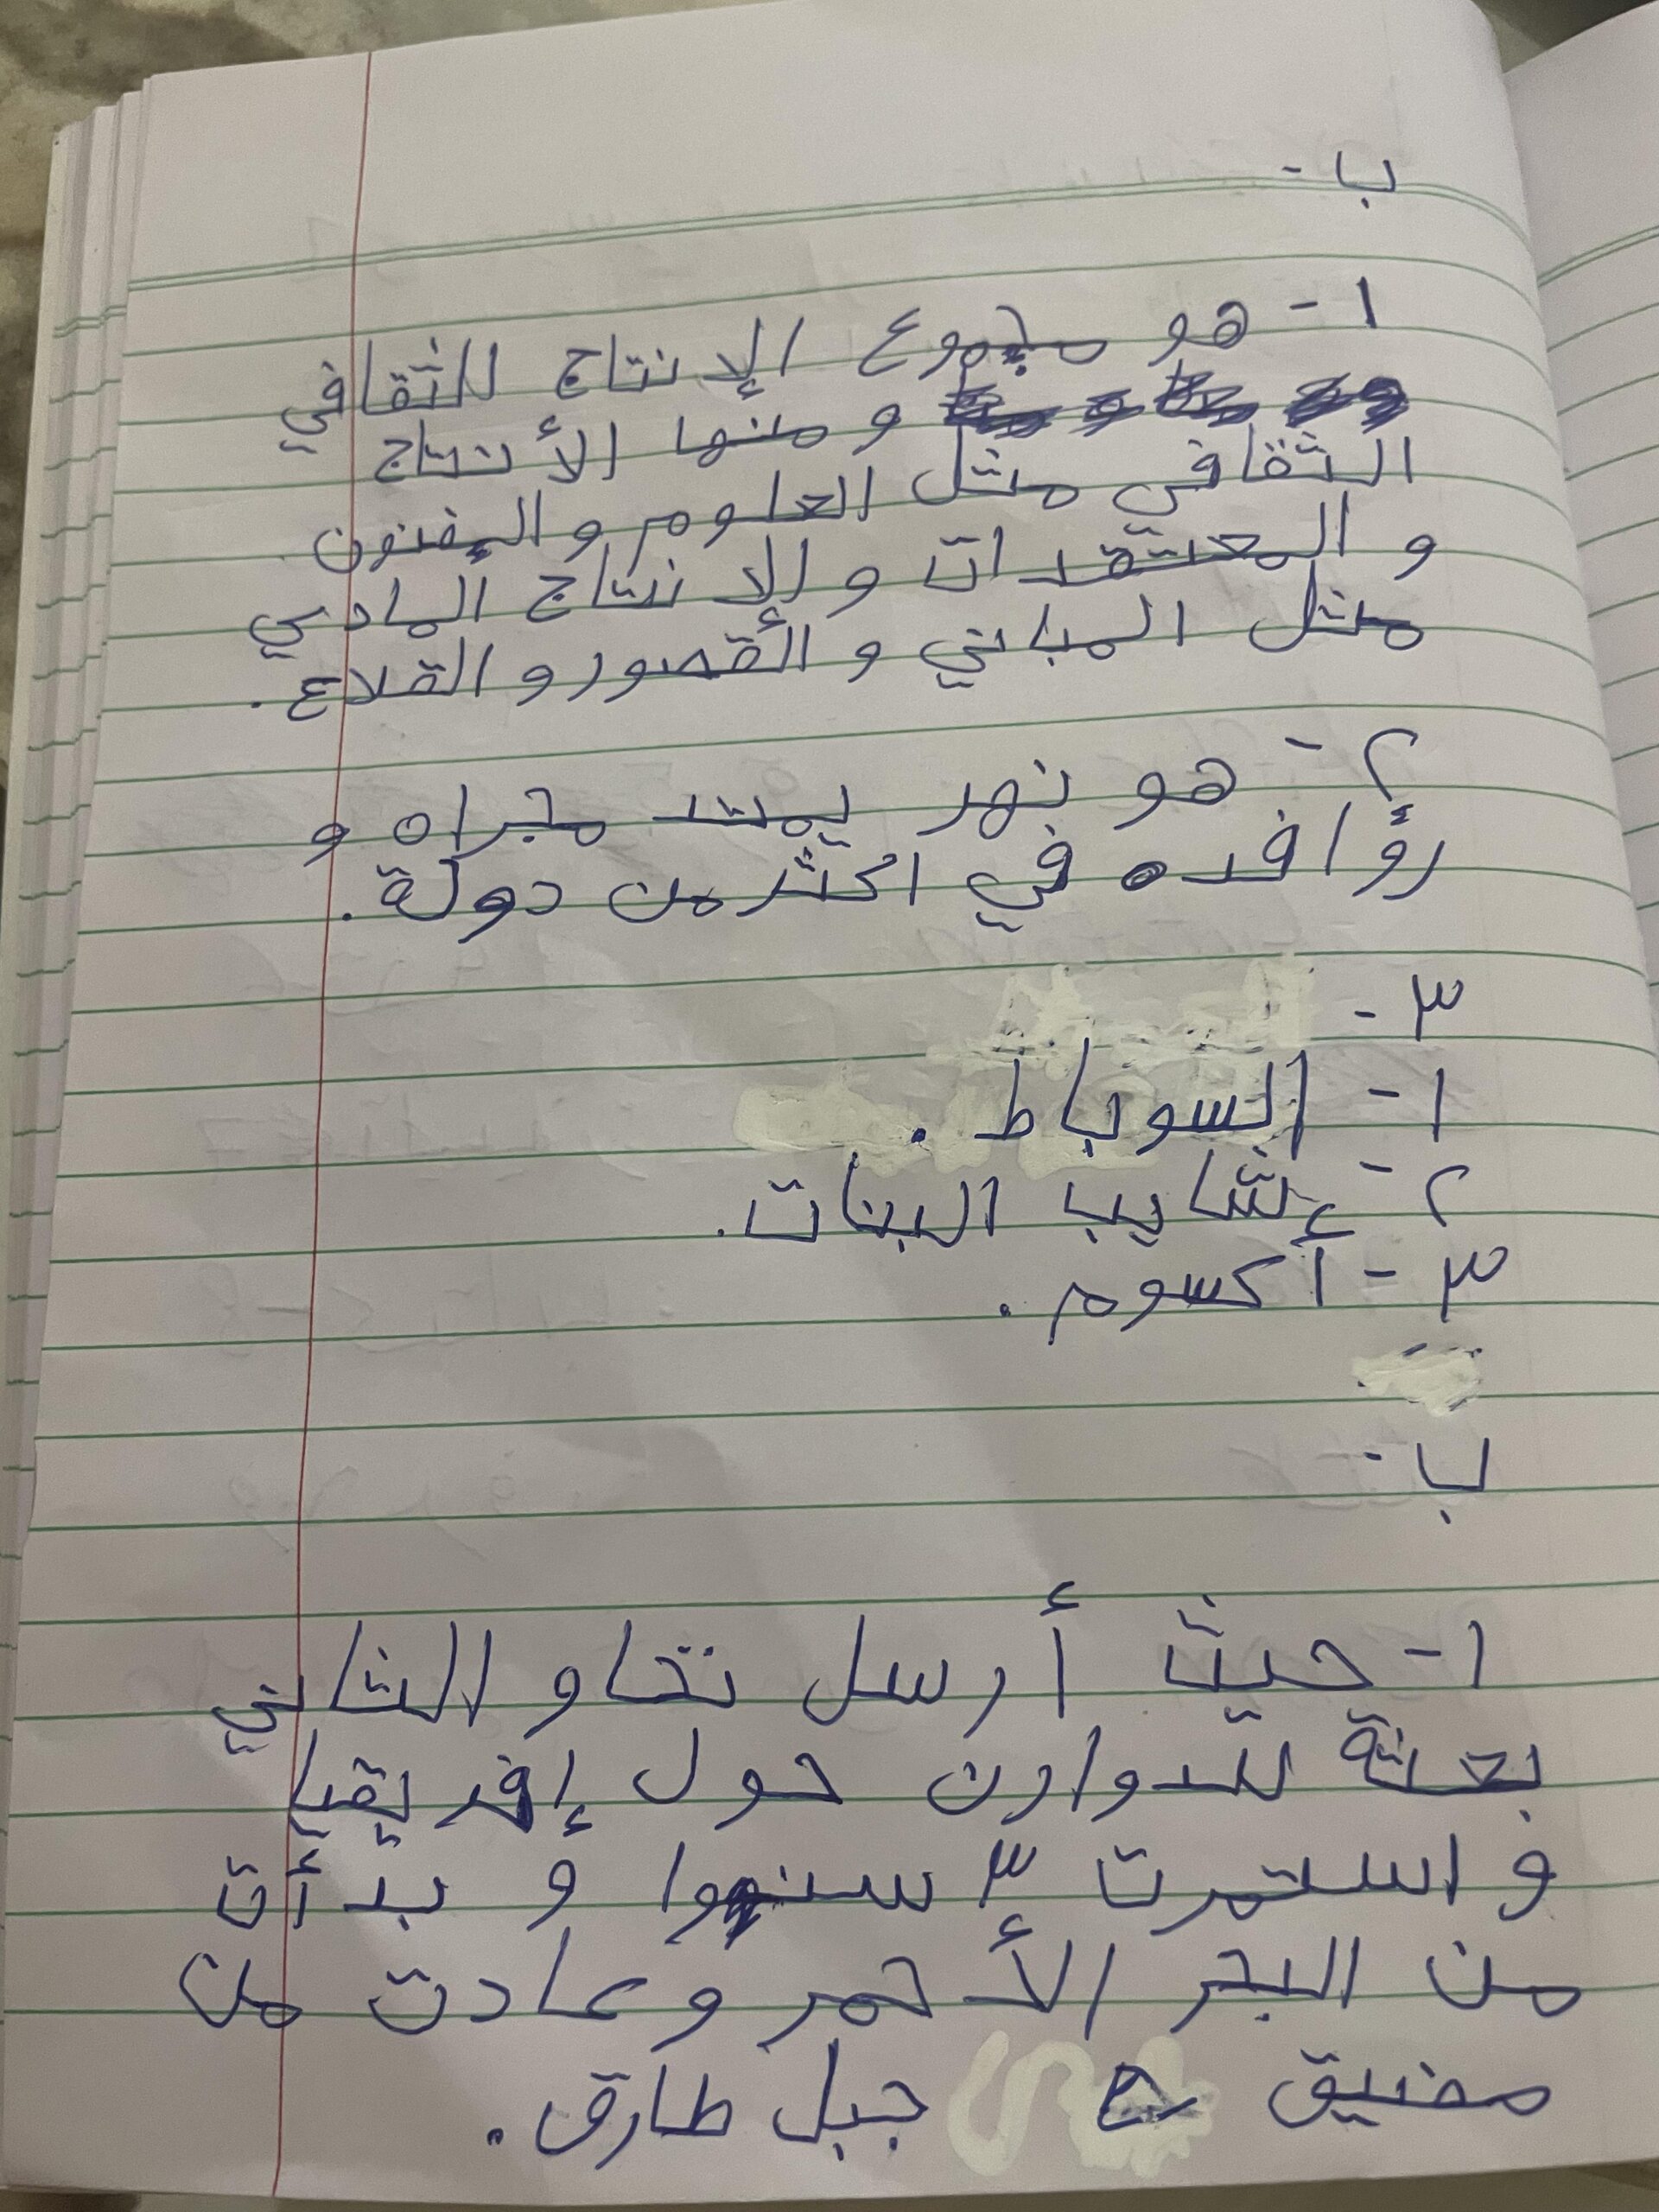 ب -
١ - هو مجموع الإنتاج للثقافي
ومنها الأنتاج
الثقافي مثل العلوم والفنون
و المعتقدات و الإنتاج المادي
مثل المباني و القصور و القلاع .
٢ - هو نهر يمتد مجراه و
رؤافده في اكثر من دولة .
٣ -
١ - السوباط .
٢ - شايب البنات .
٣ - أكسوم .
ب -
١ - حيث أرسل نخاو الثاني
بعثة للدوارن حول إفريقيا
و استمرت ٣ سنوا و بدأت
من البحر الأحمر وعادت من
مضيق جبل طارق .